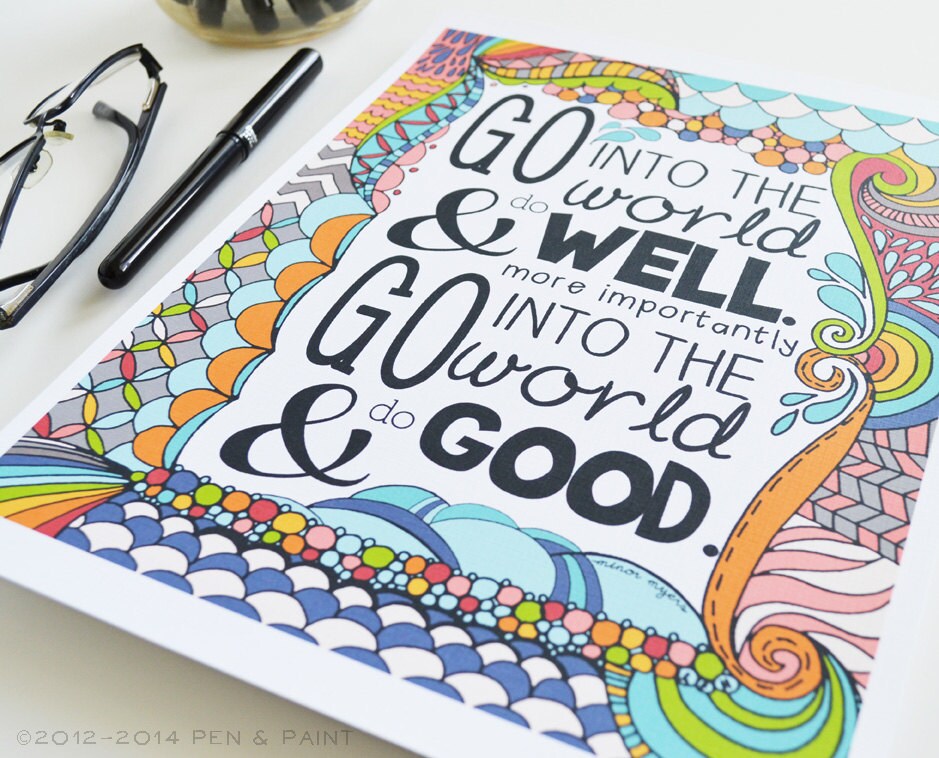 GO INTO THE
world
& do WELL.
more importantly
GO INTO THE
world
& do GOOD.
minor myers
©2012-2014 PEN & PAINT